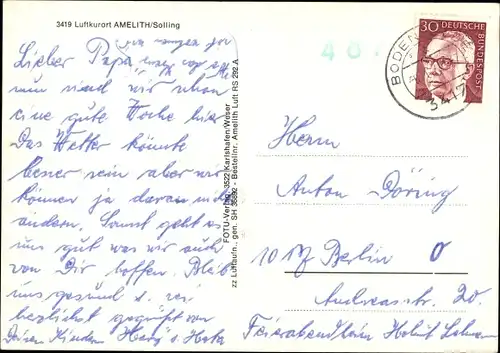 3419 Luftkurort AMELITH/Solling
Lieber Papa,
nun sind wir schon
eine gute Woche hier
Das Wetter könnte
besser sein aber wir
können ja daran nichts
ändern. Sonst geht es
uns gut was wir auch
von Dir hoffen. Bleib
uns gesund u. sei
herzlichst gegrüßt von
Deinen Kindern
FOTU-Verlag 3522 Karlshafen/Weser
zz Luftaufn., gen. SH 36692 - Bestellnr. Amelith Luft RS 292 A
48
30
DEUTSCHE BUNDESPOST
BODEN
3417
Herrn
Anton Döring
Berlin
20.
Feierabendheim